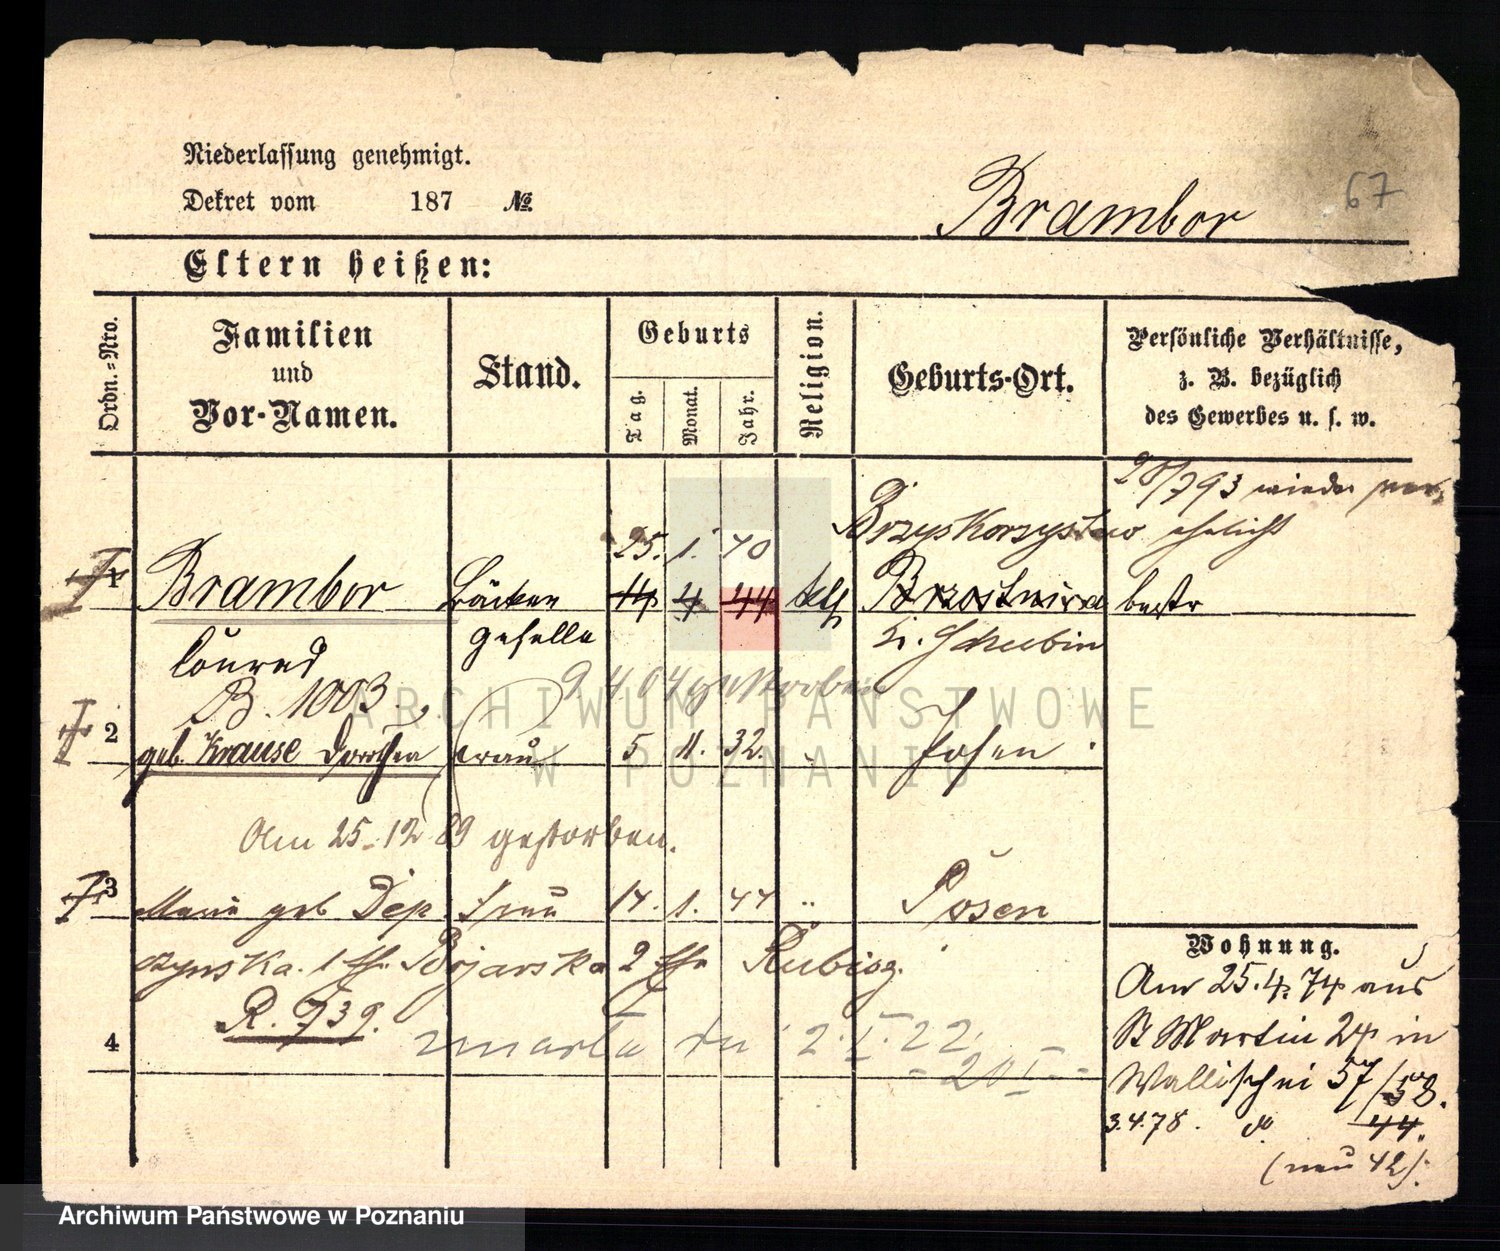 Niederlassung genehmigt.
Dekret vom 187 №.
Brambor
67
Eltern heißen:
Ordn.=Nro.
Familien
und
Vor-Namen.
Stand.
Geburts
Tag.
Monat.
Jahr.
Religion.
Geburts-Ort.
Persönliche Verhältnisse,
z. B. bezüglich
des Gewerbes u. s. w.
28/7 93 wieder ver
ehelicht
25. 1. 40
Brzyskorzystew
1 Brambor Bäcker 14 4 44 kth Brzostwira
geselle
K. Schubin
Conrad
B. 1003.
9 4 04 gestorben
2 geb. Krause Dorothea Frau 5 11. 32. Posen
Am 25.12 89 gestorben.
3 Marie geb Dep Frau 14. 1. 44 " Posen
czynska. 1 Eh. Bojarska 2 Ehe
R. 739.
4 zmarła dn 2.I.22
Wohnung.
Am 25.4.74 aus
St Martin 24 in
Wallischei 57/58.
3.4.78. do 44.
(neu 42).
ARCHIWUM PAŃSTWOWE
W POZNANIU
Archiwum Państwowe w Poznaniu